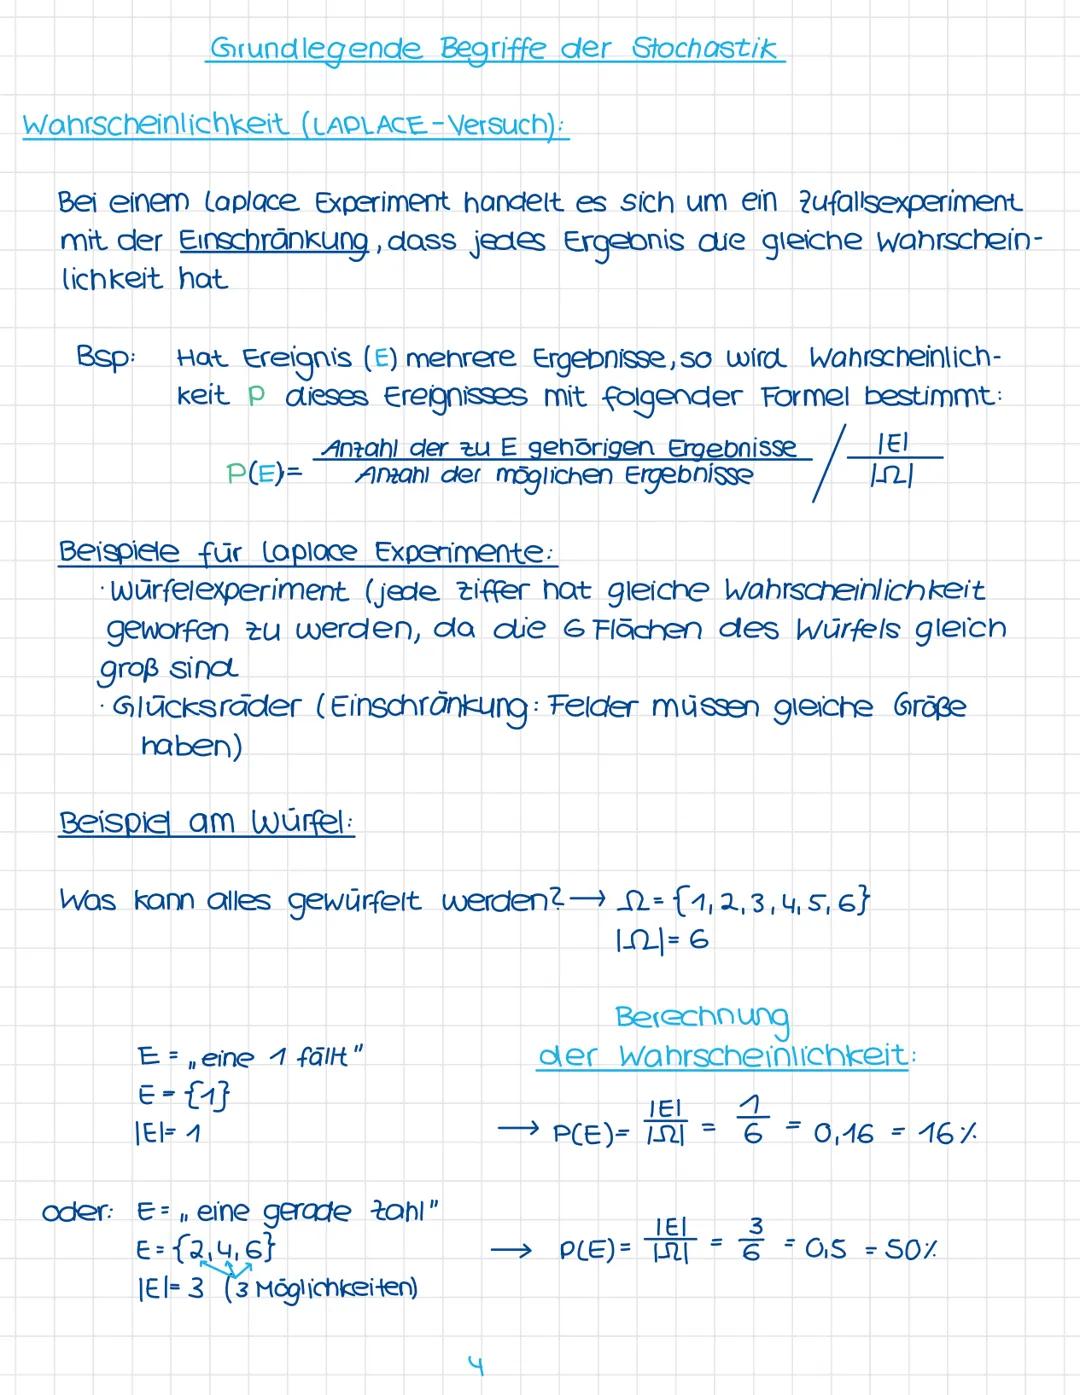 Grundlegende Begriffe der Stochastik
Wahrscheinlichkeit (LAPLACE-Versuch):
Bei einem Laplace Experiment handelt es sich um ein Zufallsexperiment
mit der Einschränkung, dass jedes Ergebnis die gleiche Wahrschein-
lichkeit hat
Bsp: Hat Ereignis (E) mehrere Ergebnisse, so wird Wahrscheinlich-
keit P dieses Ereignisses mit folgender Formel bestimmt:
P(E)= Anzahl der zu E gehörigen Ergebnisse / |E|
Anzahl der möglichen Ergebnisse |Ω|
Beispiele für Laplace Experimente:
· Würfelexperiment (jede Ziffer hat gleiche Wahrscheinlichkeit
geworfen zu werden, da die 6 Flächen des Würfels gleich
groß sind
· Glücksräder (Einschränkung: Felder müssen gleiche Größe
haben)
Beispiel am Würfel:
Was kann alles gewürfelt werden? → Ω = {1, 2, 3, 4, 5, 6}
|Ω| = 6
Berechnung
der Wahrscheinlichkeit:
E = „eine 1 fällt"
E = {1}
|E| = 1
→ P(E) = |E|/|Ω| = 1/6 = 0,16 = 16%
oder: E = „eine gerade Zahl"
E = {2, 4, 6}
|E| = 3 (3 Möglichkeiten)
→ P(E) = |E|/|Ω| = 3/6 = 0,5 = 50%
4